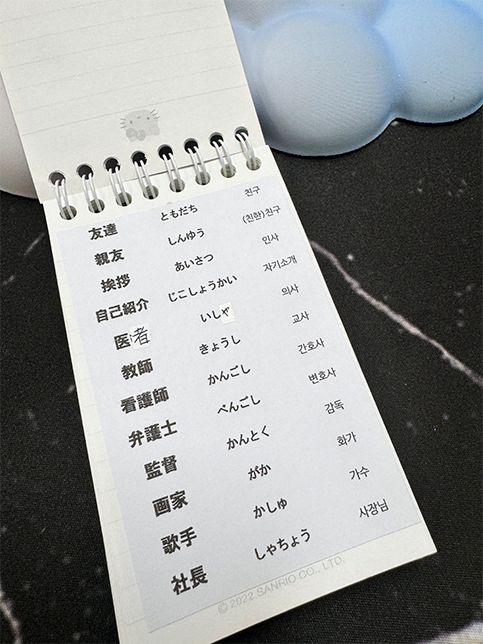 友達 ともだち 친구
親友 しんゆう (친한)친구
挨拶 あいさつ 인사
自己紹介 じこしょうかい 자기소개
医者 いしゃ 의사
教師 きょうし 교사
看護師 かんごし 간호사
弁護士 べんごし 변호사
監督 かんとく 감독
画家 がか 화가
歌手 かしゅ 가수
社長 しゃちょう 사장님
© 2022 SANRIO CO., LTD.